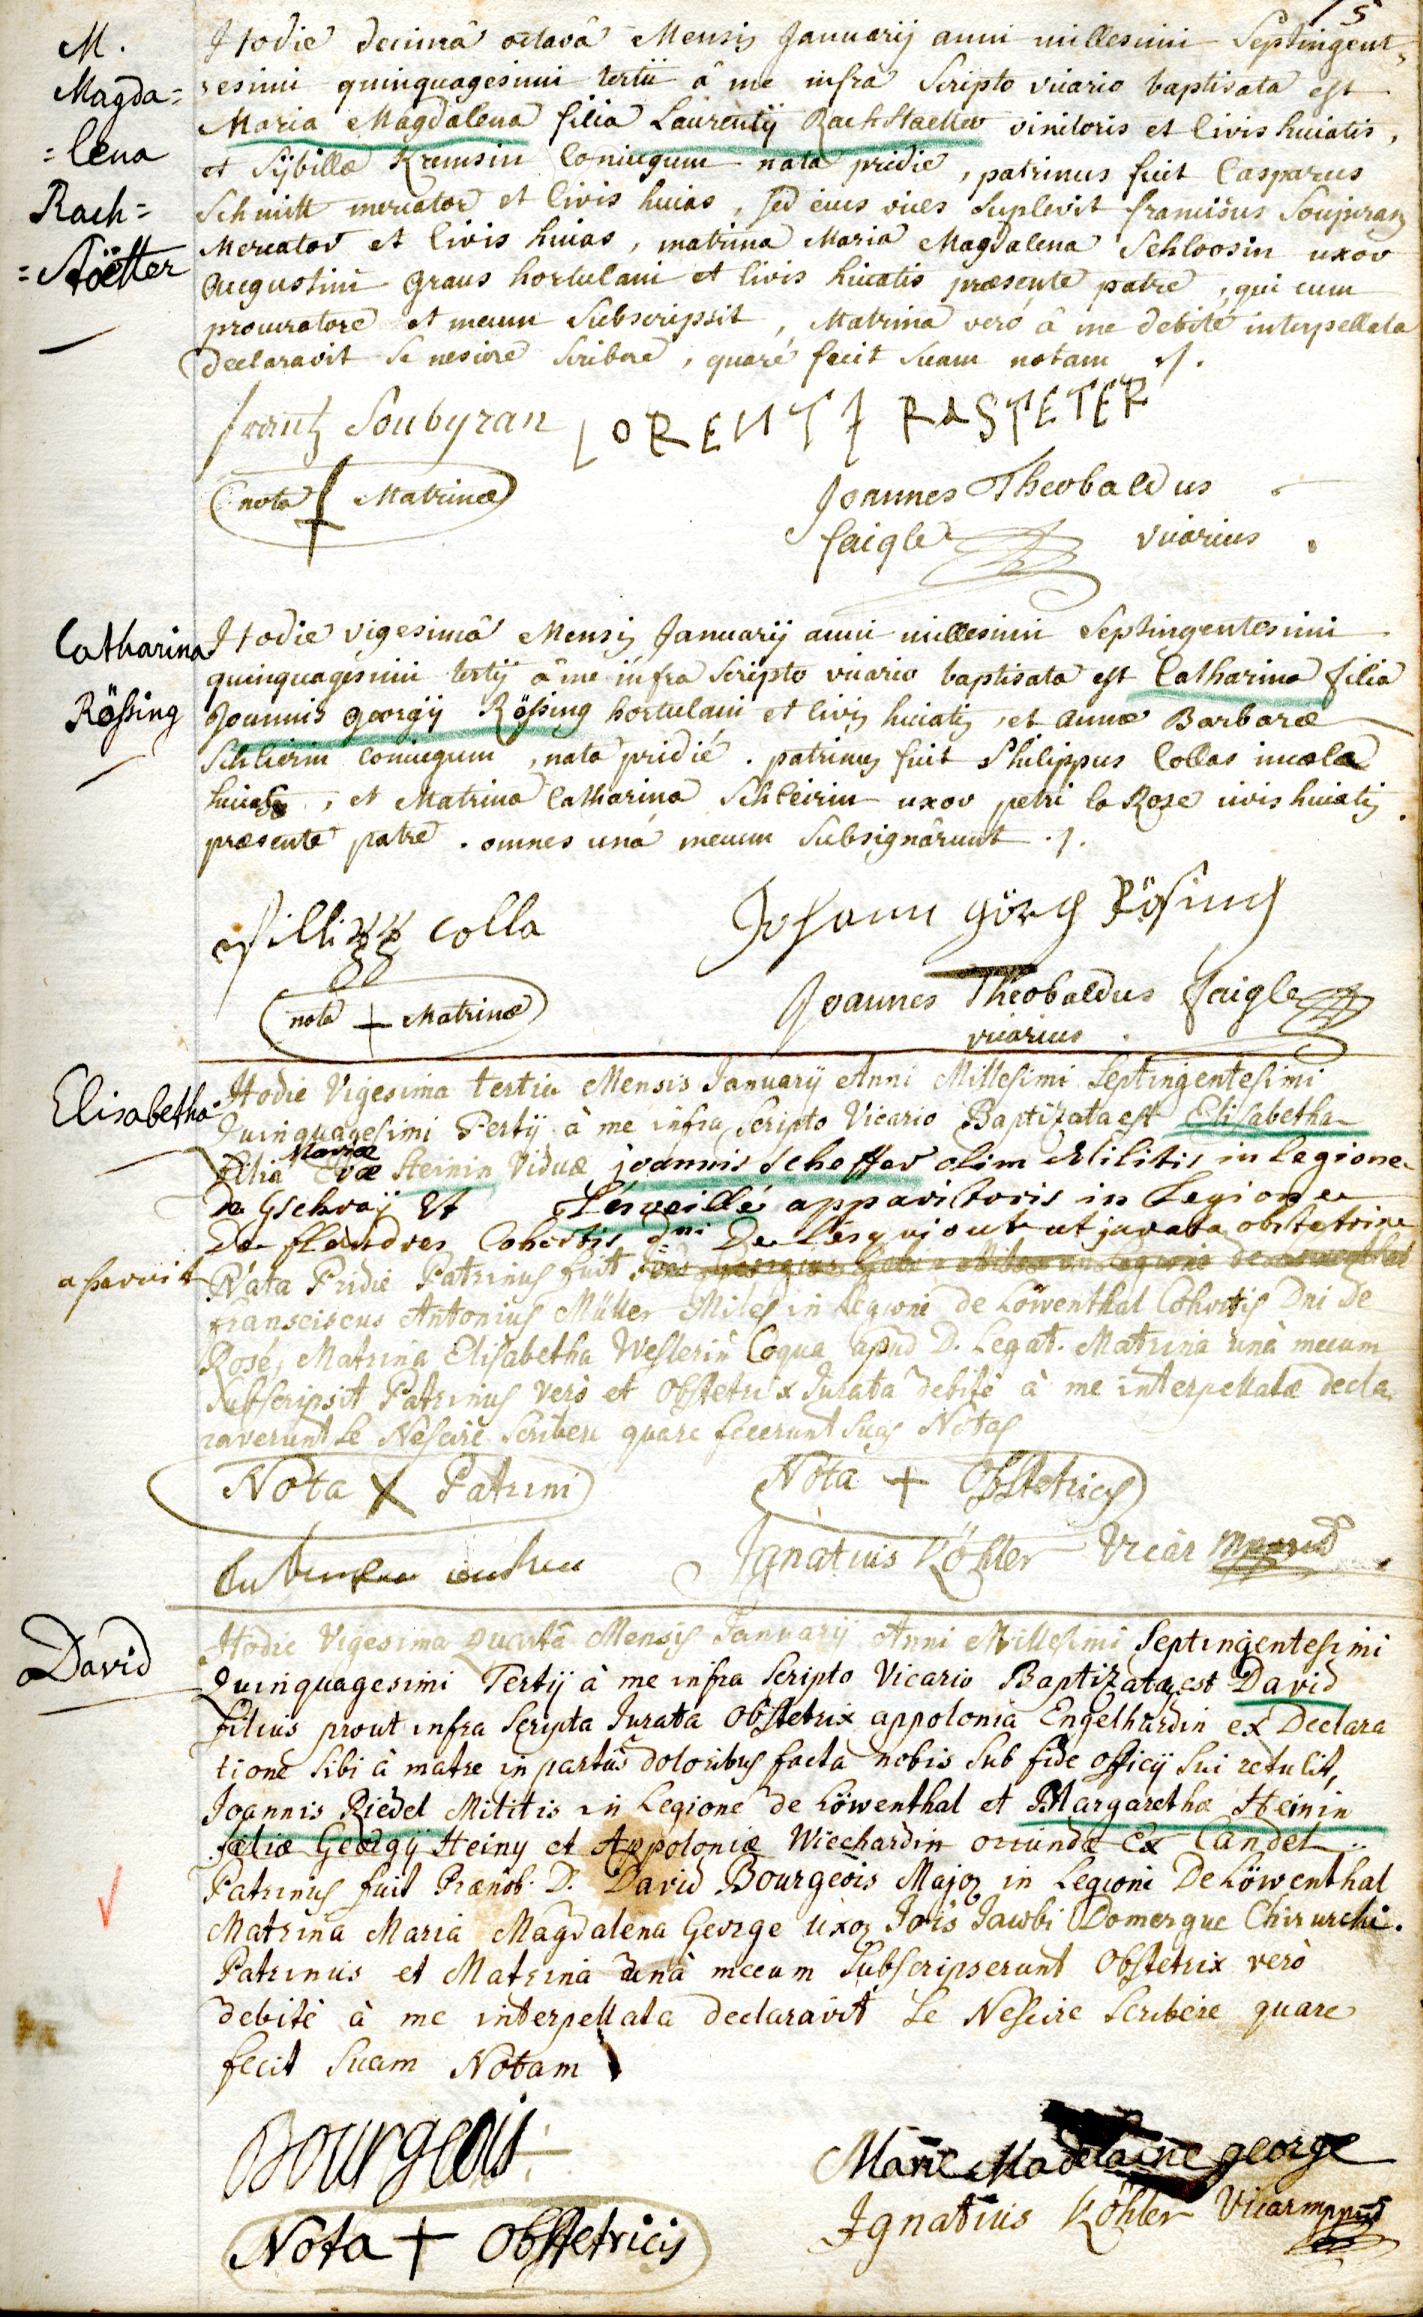 15
M.
Magda=
=lena
Rach=
=Stöetter
Hodie decimâ octavâ Mensis Januarij anni millesimi Septingent,
esimi quinquagesimi tertii â me infrà Scripto vicario baptisata est
Maria Magdalena filia Laurentij Rachstaetter vinitoris et Civis huiatis,
et Sÿbillæ Kremsin Coniugum nata pridie, patrinus fuit Casparus
Schmitt mercator et Civis huias, sed eius vices Suplevit franciscus Soupiran
Mercator et Civis huias, matrina Maria Magdalena Schloosin uxor
Augustini Graus hortulani et Civis huiatis præsente patre, qui cum
procuratore et mecum Subscripsit, Matrina verò â me debitè interpellata
declaravit Se nescire Scribere, quarè fecit Suam notam ·/.
frantz Soubyran LORENTZ RASTETER
nota † Matrinæ
Joannes Theobaldus
faigle vicarius.
Catharina
Rößing
Hodie vigesimâ Mensis Januarij anni millesimi Septingentesimi
quinquagesimi tertij â me infra Scripto vicario baptisata est Catharina filia
Joannis georgij Rößing hortulani et Civis huiatis, et Annæ Barbaræ
Schlierin Coniugum, nata pridié. patrinus fuit Philippus Collas incola
huias, et Matrina Catharina Schleirin uxor petri la Rose civis huiatis
præsente patre. omnes unà mecum Subsignârunt ·/.
fillipp Colla Johann görg Rösing
nota + Matrinæ
Joannes Theobaldus faigle
vicarius.
Elisabetha
Hodie Vigesima tertia Mensis Januarij Anni Millesimi Septingentesimi
Quinquagesimi Tertij à me infra Scripto Vicario Baptizata est Elisabetha
Mariæ
filia Evæ Steinin Viduæ joannis Scheffer olim Militis in legione
de Gschraÿ Et L'esveillé apparitoris in Legione
De flandres Cohortis dni De ut jurata obstetrix
aperuit
Nata Pridie Patrinus fuit
franciscus Antonius Müller Miles in Legioni de Löwenthal Cohortis Dni De
Rosé, Matrina Elisabetha Weslerin Coqua apud D. Legat. Matrina unà mecum
Subscripsit Patrinus verò et Obstetrix Jurata debitè à me interpellatæ decla
raverunt Se Nescire Scribere quare fecerunt Suas Notas
Nota X Patrini
Nota + Obstetricis
Ignatius Köhler Vicar mppria
David
Hodie Vigesima Quarta Mensis Januarij Anni Millesimi Septingentesimi
Quinquagesimi Tertij à me infra Scripto Vicario Baptizatus est David
filius prout infra Scripta Jurata Obstetrix appolonia Engelhardin ex Declara
tione Sibi à matre in partûs doloribus facta nobis Sub fide officij Sui retulit,
Joannis Riedel Militis in Legione de Löwenthal et Margarethæ Heinin
filiæ Georgij Heiny et Appoloniæ Wiechardin oriundæ Ex Candel
Patrinus fuit Prænob. D. David Bourgeois Major in Legioni De Löwenthal
Matrina Maria Magdalena George uxor Jois Jacobi Domergue Chirurchi.
Patrinus et Matrina unà mecum Subscripserunt Obstetrix verò
debitè à me interpellata declaravit Se Nescire Scribere quare
fecit Suam Notam
Bourgeois
Marie Madelaine george
Nota + Obstetricis
Ignatius Köhler Vicar mppria